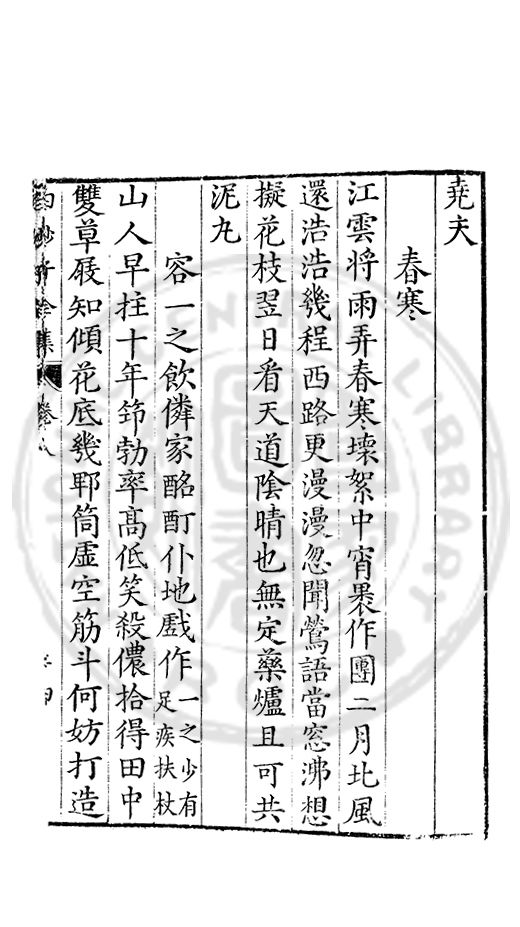 堯夫
春寒
江雲將雨弄春寒壞絮中宵褁作團二月北風
還浩浩幾程西路更漫漫忽聞鶯語當窓沸想
擬花枝翌日看天道陰晴也無定藥爐且可共
泥丸
容一之飲隣家酩酊仆地戲作一之少有足疾扶杖
山人早拄十年笻勃窣高低笑殺儂拾得田中
雙草屐知傾花底幾郫筒虛空筋斗何妨打造